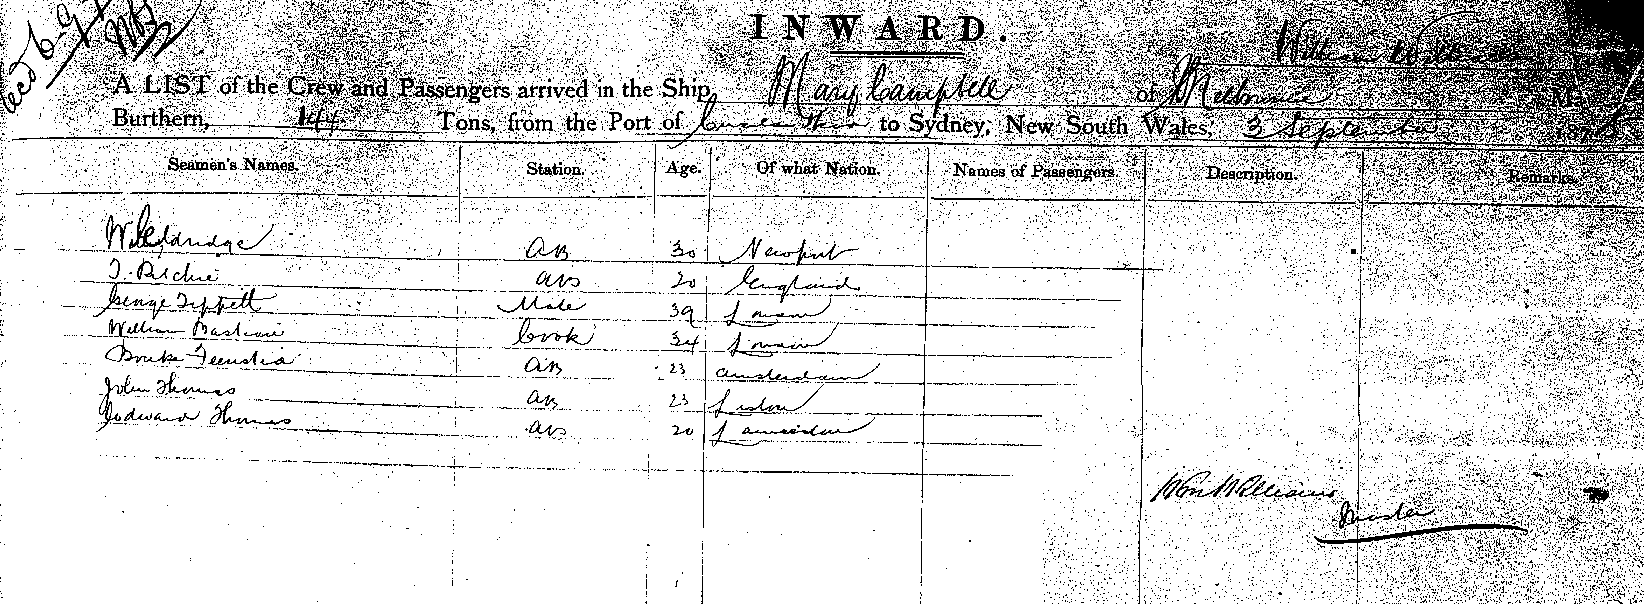 INWARD.
William
A LIST of the Crew and Passengers arrived in the Ship, Mary Campbell of Melbourne
Burthern, 144 Tons, from the Port of to Sydney, New South Wales, 3 September
Seamen's Names. Station. Age. Of what Nation. Names of Passengers. Description. Remarks.
W Eldridge AB 30 Newport
T. Ritchie AB 20 England
George Tippett Mate 39
William Bastian Cook 34
AB 23 Amsterdam
John Thomas AB 23 Lisbon
Thomas AB 20 Launceston
Wm Williams
Master